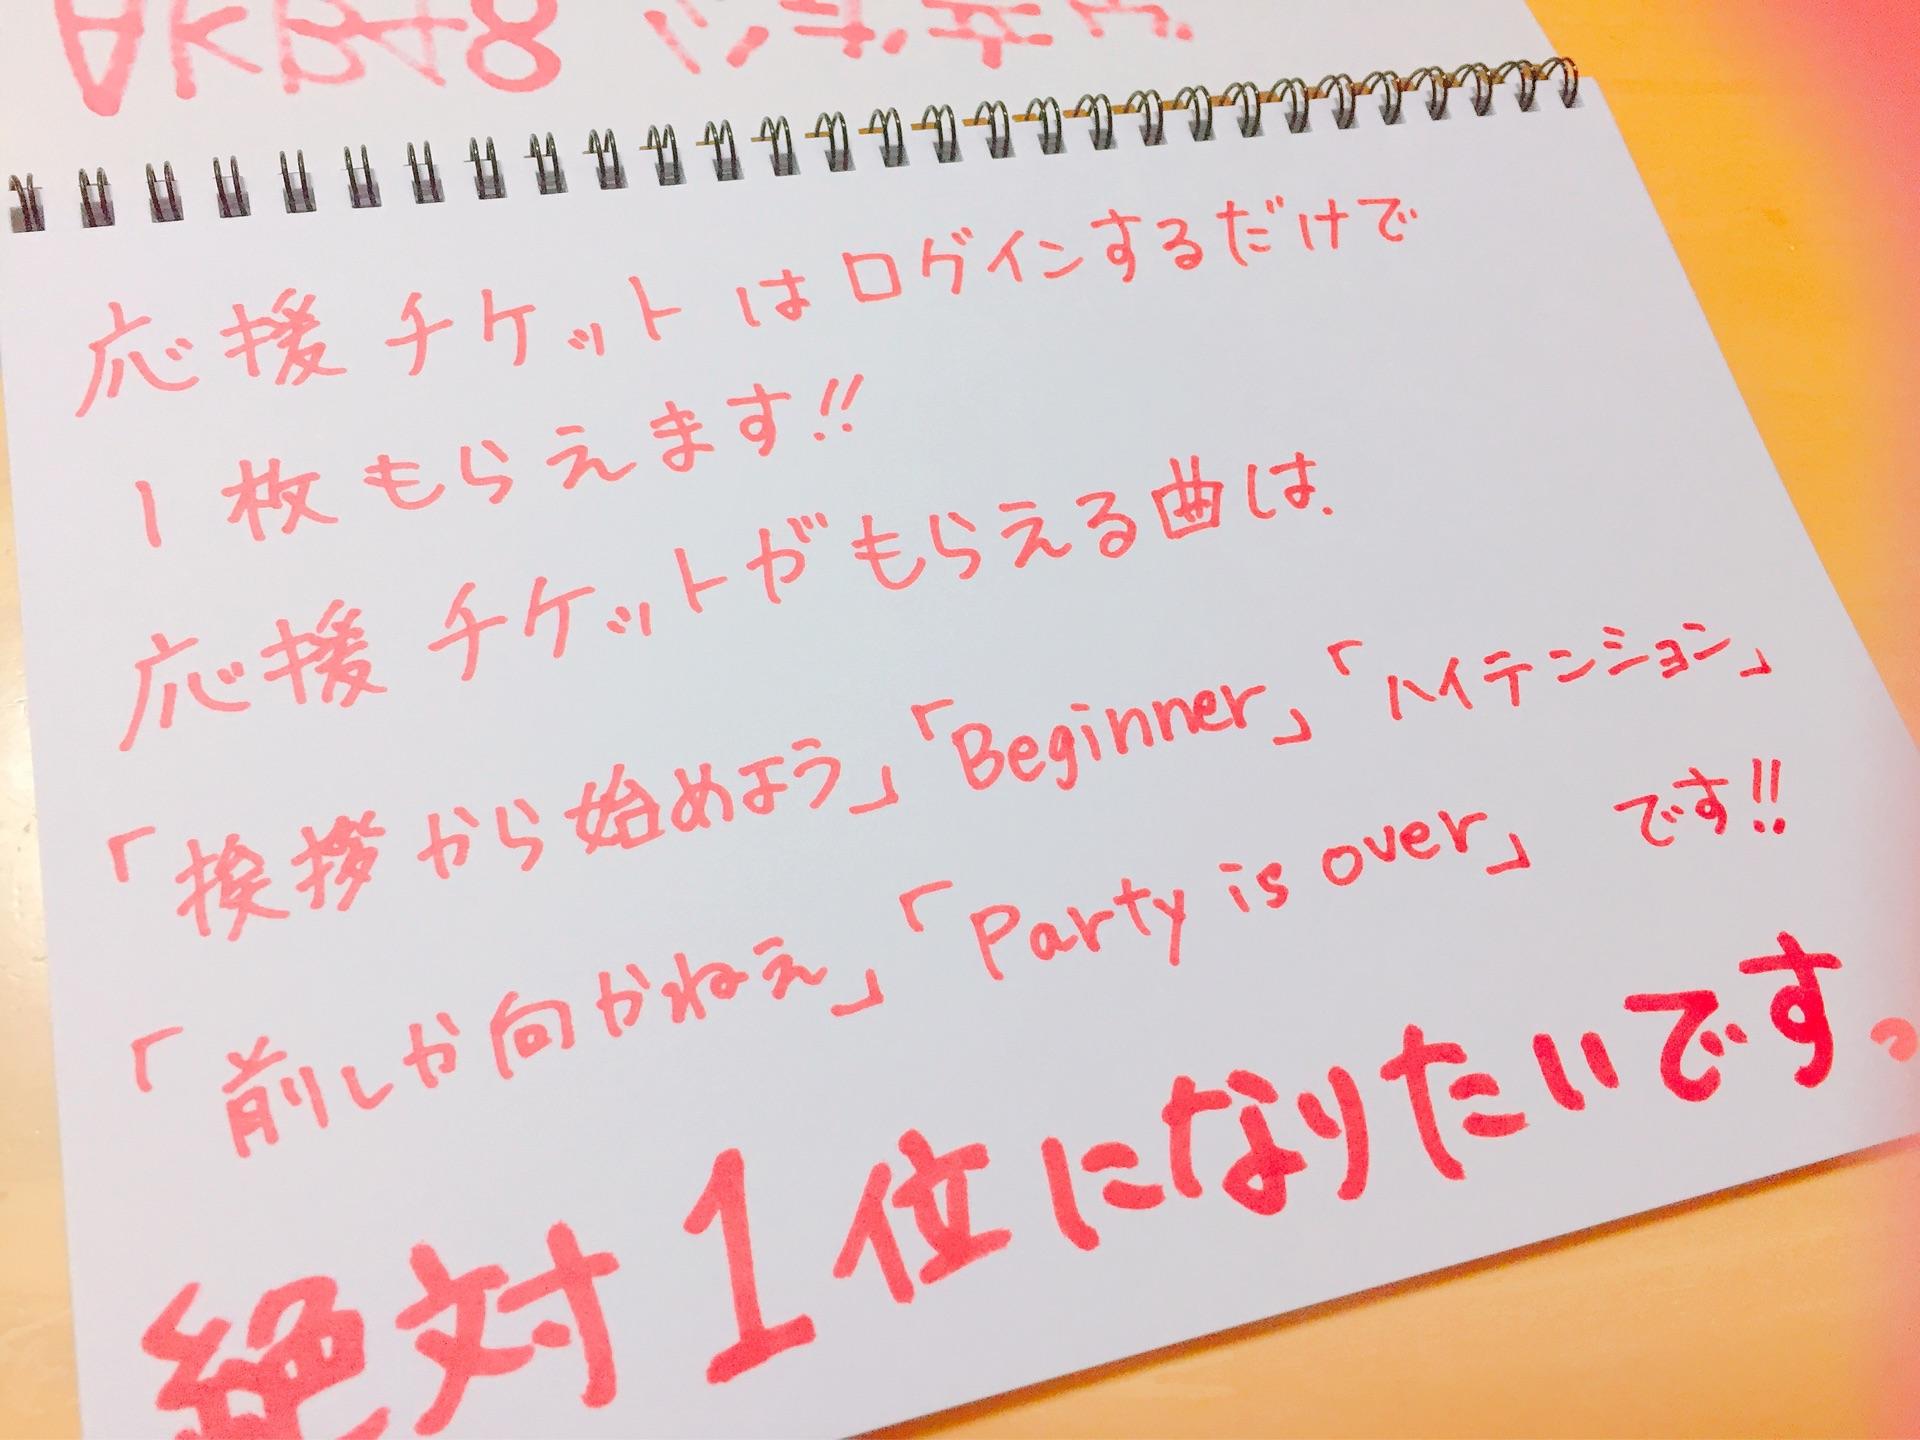 AKB48
応援チケットはログインするだけで
1枚もらえます!!
応援チケットがもらえる曲は.
「挨拶から始めよう」「Beginner」「ハイテンション」
「前しか向かねえ」「Party is over」 です!!
絶対1位になりたいです。